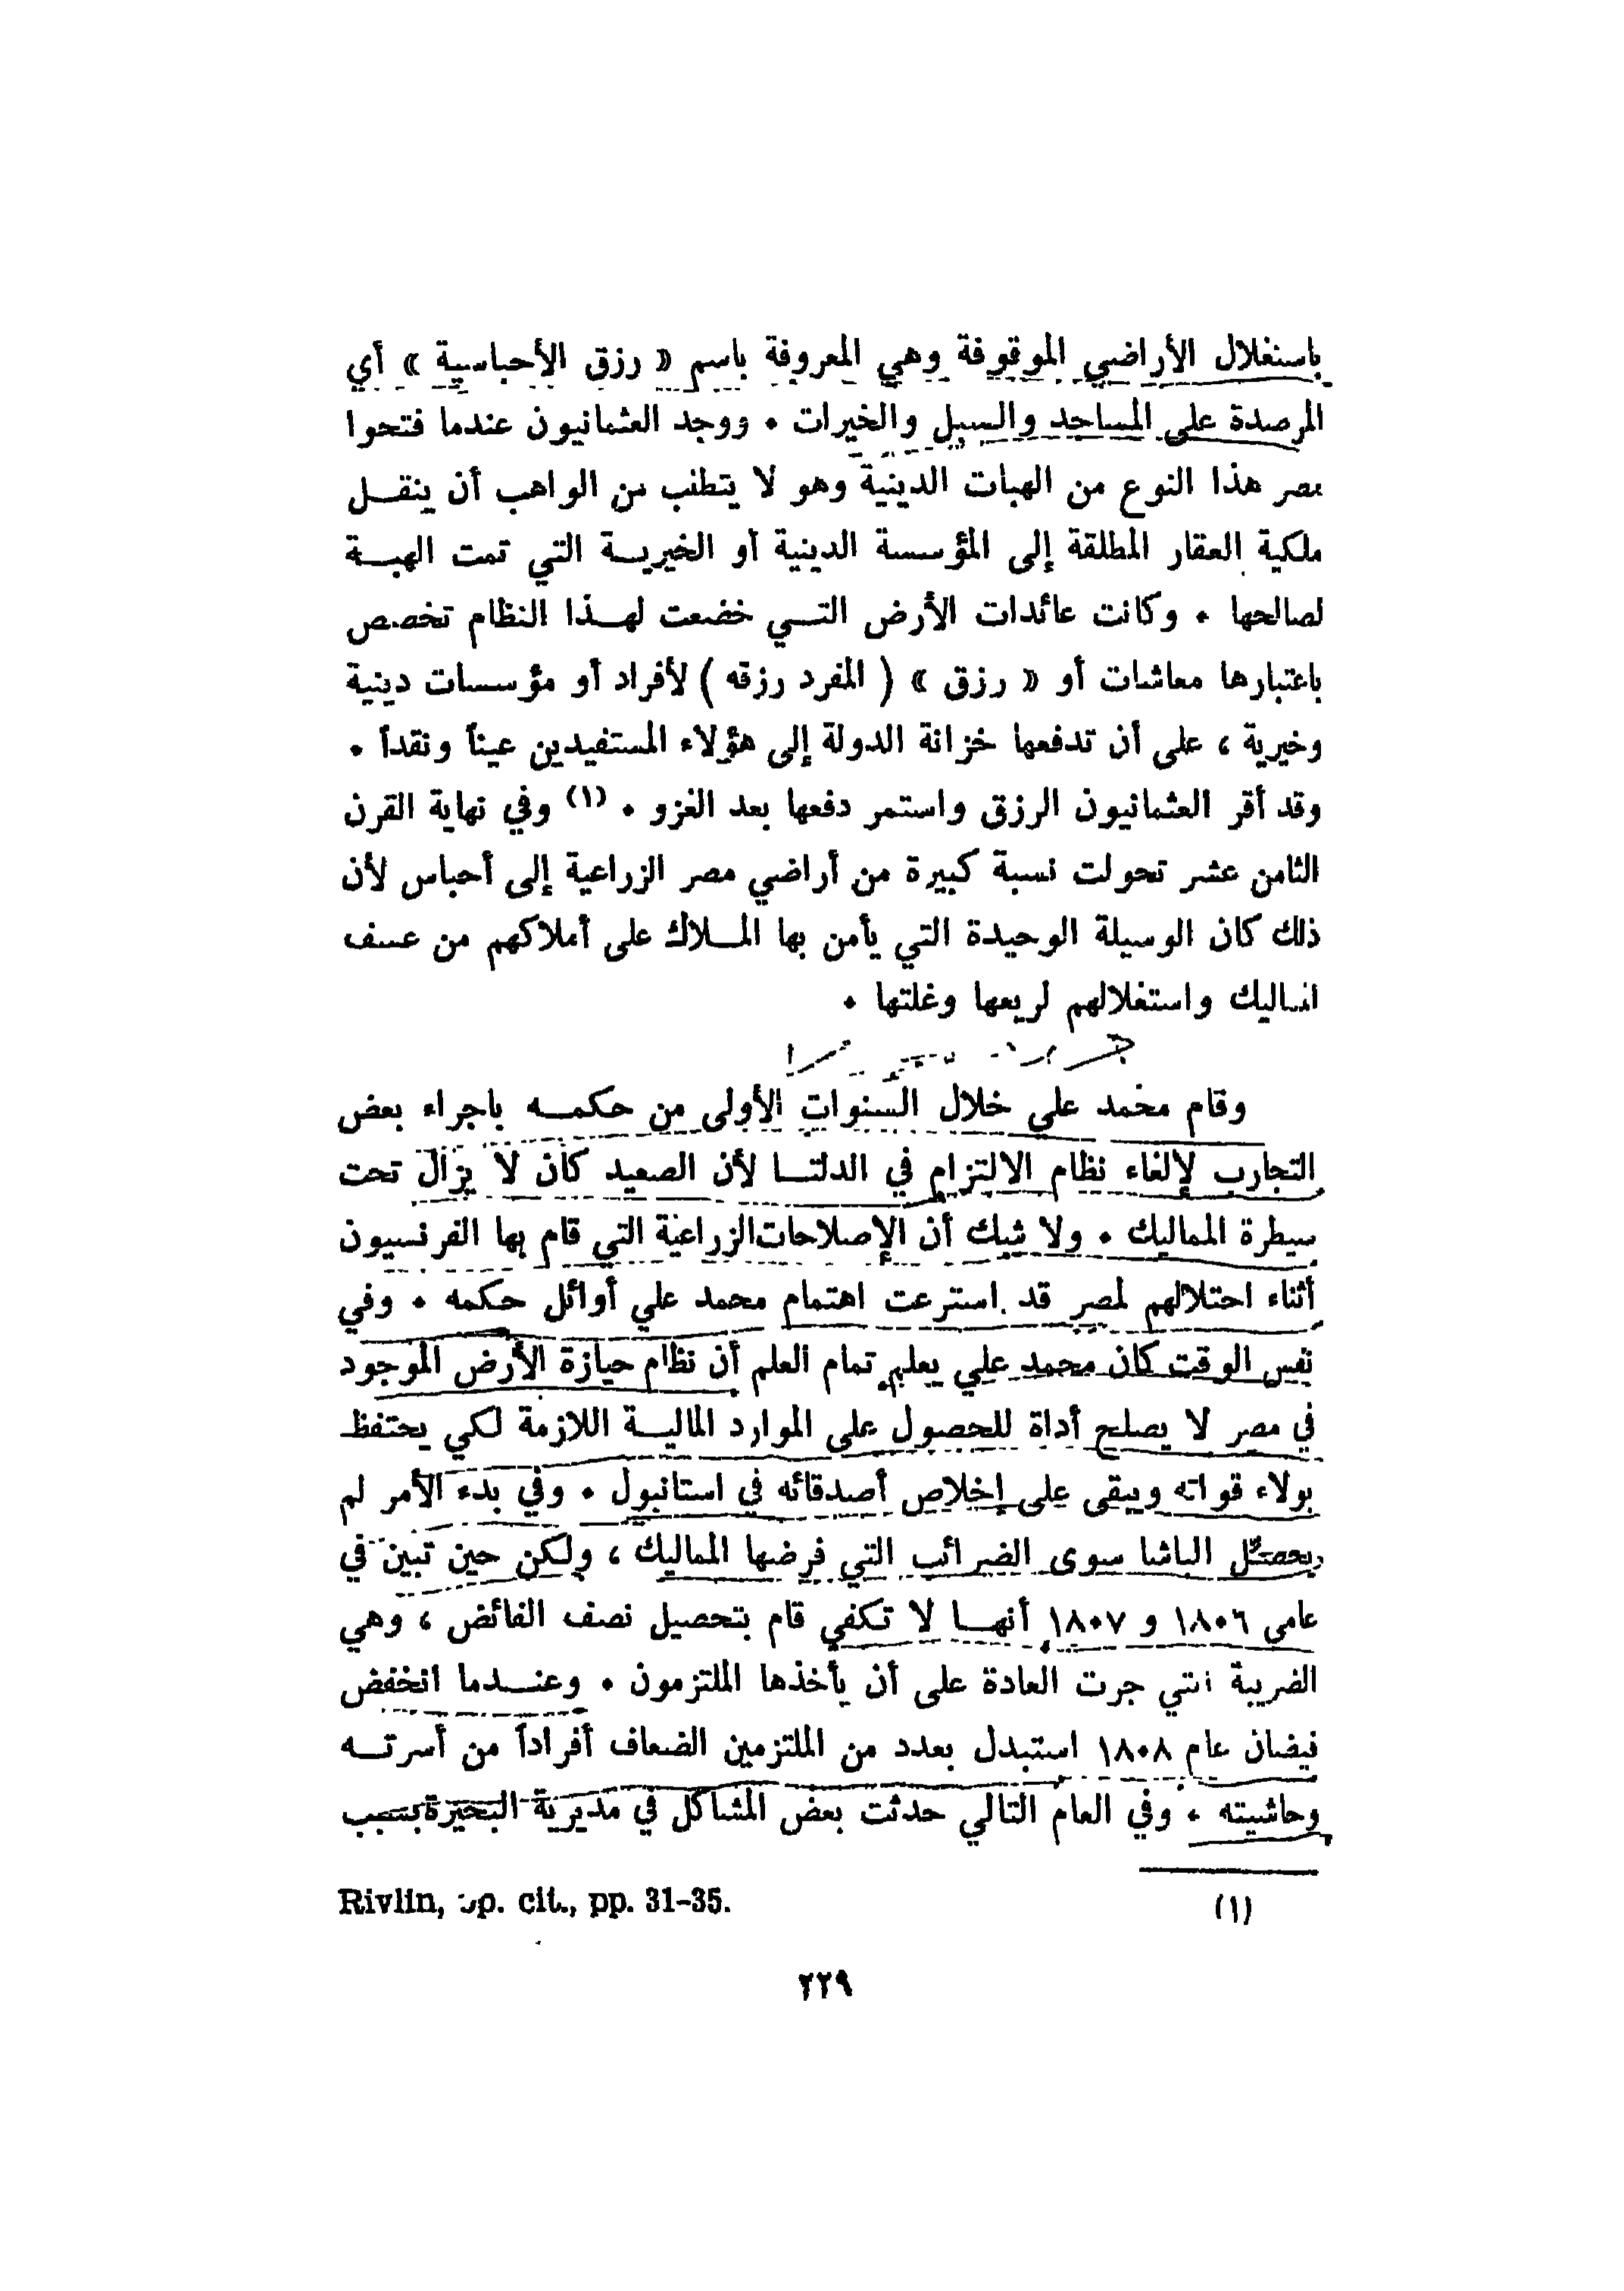 باستغلال الأراضي الموقوفة وهي المعروفة باسم « رزق الأحباسية » أي
المرصدة على المساجد والسبل والخيرات . ووجد العثمانيون عندما فتحوا
مصر هذا النوع من الهبات الدينية وهو لا يتطلب من الواهب أن ينقل
ملكية العقار المطلقة إلى المؤسسة الدينية أو الخيرية التي تمت الهبة
لصالحها . وكانت عائدات الأرض التي خضعت لهذا النظام تخصص
باعتبارها معاشات أو « رزق » ( المفرد رزقه ) لأفراد أو مؤسسات دينية
وخيرية ، على أن تدفعها خزانة الدولة إلى هؤلاء المستفيدين عيناً ونقداً .
وقد أقر العثمانيون الرزق واستمر دفعها بعد الغزو . (١) وفي نهاية القرن
الثامن عشر تحولت نسبة كبيرة من أراضي مصر الزراعية إلى أحباس لأن
ذلك كان الوسيلة الوحيدة التي يأمن بها الملاك على أملاكهم من عسف
المماليك واستغلالهم لريعها وغلتها .
وقام محمد علي خلال السنوات الأولى من حكمه باجراء بعض
التجارب لإلغاء نظام الالتزام في الدلتا لأن الصعيد كان لا يزال تحت
سيطرة المماليك . ولا شك أن الإصلاحات الزراعية التي قام بها الفرنسيون
أثناء احتلالهم لمصر قد استرعت اهتمام محمد علي أوائل حكمه . وفي
نفس الوقت كان محمد علي يعلم تمام العلم أن نظام حيازة الأرض الموجود
في مصر لا يصلح أداة للحصول على الموارد المالية اللازمة لكي يحتفظ
بولاء قواته ويبقى على إخلاص أصدقائه في استانبول . وفي بدء الأمر لم
يحصل الباشا سوى الضرائب التي فرضها المماليك ، ولكن حين تبين في
عامى ١٨٠٦ و ١٨٠٧ أنها لا تكفي قام بتحصيل نصف الفائض ، وهي
الضريبة التي جرت العادة على أن يأخذها الملتزمون . وعندما انخفض
فيضان عام ١٨٠٨ استبدل بعدد من الملتزمين الضعاف أفراداً من أسرته
وحاشيته . وفي العام التالي حدثت بعض المشاكل في مديرية البحيرة بسبب
(١) Rivlin, op. cit., pp. 31-35.
٢٢٩